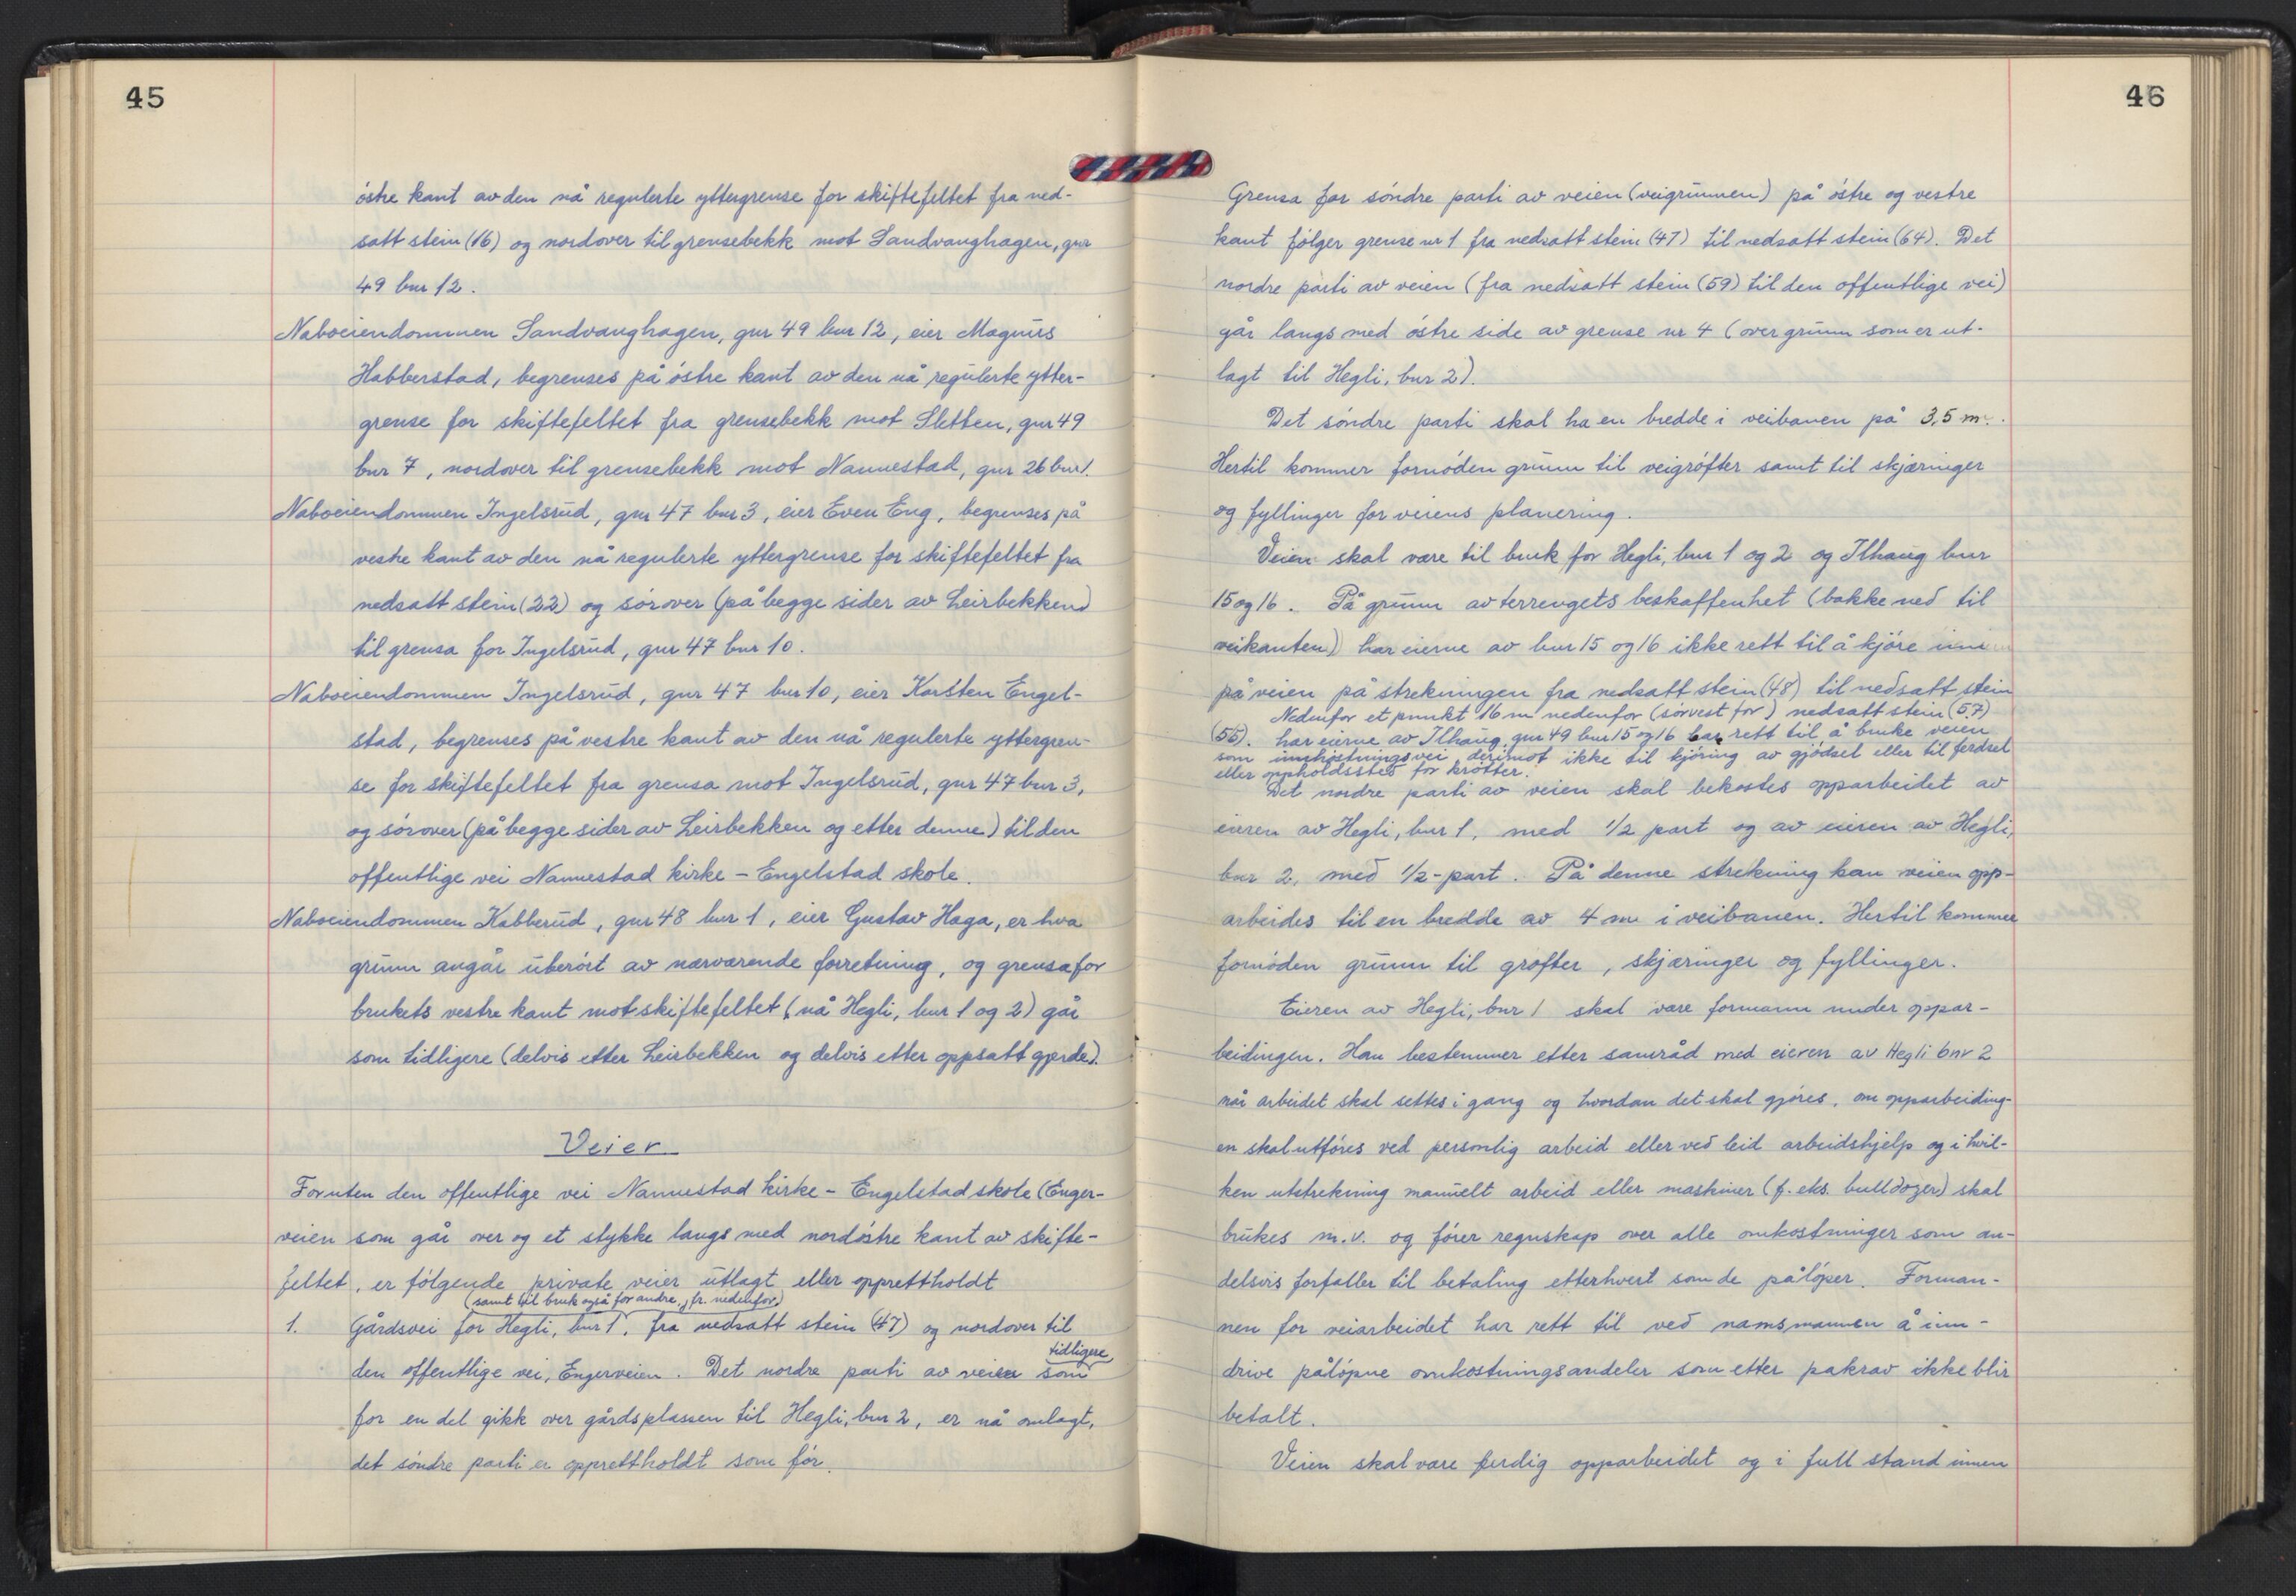 45
östre kant av den nå regulerte yttergrense for skiftefeltet fra ned-
satt stein (16) og nordover til grensebekk mot Sandvanghagen, gnr
49 bnr 12.
Naboeiendommen Sandvanghagen, gnr 49 bnr 12, eier Magnus
Habberstad, begrenses på östre kant av den nå regulerte ytter-
grense for skiftefeltet fra grensebekk mot Sletten, gnr 49
bnr 7, nordover til grensebekk mot Nannestad, gnr 26 bnr 1.
Naboeiendommen Ingelsrud, gnr 47 bnr 3, eier Even Eng, begrenses på
vestre kant av den nå regulerte yttergrense for skiftefeltet fra
nedsatt stein (22) og sörover (på begge sider av Leirbekken)
til grensa for Ingelsrud, gnr 47 bnr 10.
Naboeiendommen Ingelsrud, gnr 47 bnr 10, eier Karsten Engel-
stad, begrenses på vestre kant av den nå regulerte yttergren-
se for skiftefeltet fra grensa mot Ingelsrud, gnr 47 bnr 3,
og sörover (på begge sider av Leirbekken og etter denne) til den
offentlige vei Nannestad kirke - Engelstad skole.
Naboeiendommen Kabberud, gnr 48 bnr 1, eier Gustav Haga, er hva
grunn angår uberört av nærværende forretning, og grensa for
brukets vestre kant mot skiftefeltet (nå Hegli, bnr 1 og 2) går
som tidligere (delvis etter Leirbekken og delvis etter oppsatt gjerde).
Veier
Foruten den offentlige vei Nannestad kirke - Engelstad skole (Enger-
veien som går over og et stykke langs med nordöstre kant av skifte-
feltet, er fölgende private veier utlagt eller opprettholdt
(samt til bruk også for andre, jfr. nedenfor)
1. Gårdsvei for Hegli, bnr 1, fra nedsatt stein (47) og nordover til
tidligere
den offentlige vei, Engerveien. Det nordre parti av veien som
for en del gikk over gårdsplassen til Hegli, bnr 2, er nå omlagt,
det söndre parti er opprettholdt som för.
46
Grensa for söndre parti av veien (veigrunnen) på östre og vestre
kant fölger grense nr 1 fra nedsatt stein (47) til nedsatt stein (64). Det
nordre parti av veien (fra nedsatt stein (59) til den offentlige vei)
går langs med östre side av grense nr 4 (over grunn som er ut-
lagt til Hegli, bnr 2).
Det söndre parti skal ha en bredde i veibanen på 3,5 m.
Hertil kommer fornöden grunn til veigröfter samt til skjæringer
og fyllinger for veiens planering.
Veien skal være til bruk for Hegli, bnr 1 og 2 og Ilhaug bnr
15 og 16. På grunn av terrengets beskaffenhet (bakke ned til
veikanten) har eierne av bnr 15 og 16 ikke rett til å kjöre inn
på veien på strekningen fra nedsatt stein (48) til nedsatt stein
Nedenfor et punkt 16 m nedenfor (sörvest for) nedsatt stein (57)
(56). har eierne av Ilhaug gnr 49 bnr 15 og 16 har rett til å bruke veien
som innhöstningsvei, derimot ikke til kjöring av gjödsel eller til ferdsel
eller oppholdssted for krötter.
Det nordre parti av veien skal bekostes opparbeidet av
eieren av Hegli, bnr 1, med 1/2 part og av eieren av Hegli,
bnr 2, med 1/2-part. På denne strekning kan veien opp-
arbeides til en bredde av 4 m i veibanen. Hertil kommer
fornöden grunn til gröfter, skjæringer og fyllinger.
Eieren av Hegli, bnr 1 skal være formann under oppar-
beidingen. Han bestemmer etter samråd med eieren av Hegli bnr 2
når arbeidet skal settes i gang og hvordan det skal gjöres, om opparbeiding-
en skal utföres ved personlig arbeid eller ved leid arbeidshjelp og i hvil-
ken utstrekning manuelt arbeid eller maskiner (f. eks. bulldozer) skal
brukes m.v. og förer regnskap over alle omkostninger som an-
delsvis forfaller til betaling etterhvert som de pålöper. Forman-
nen for veiarbeidet har rett til ved namsmannen å inn-
drive pålöpne omkostningsandeler som etter påkrav ikke blir
betalt.
Veien skal være ferdig opparbeidet og i full stand innen